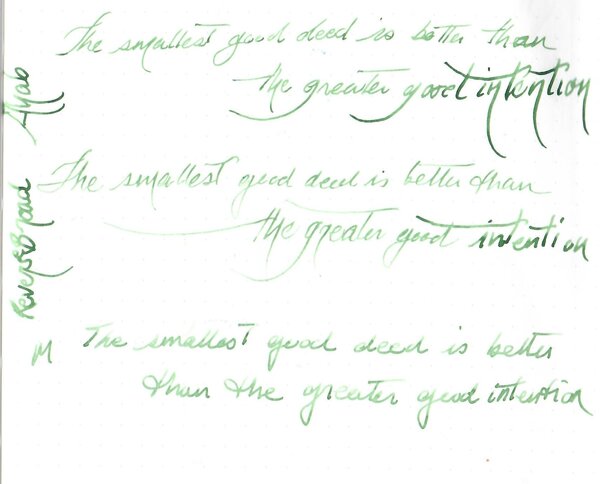 The smallest good deed is better than
the greater good intention
The smallest good deed is better than
the greater good intention
M The smallest good deed is better
than the greater good intention
Reverse Broad